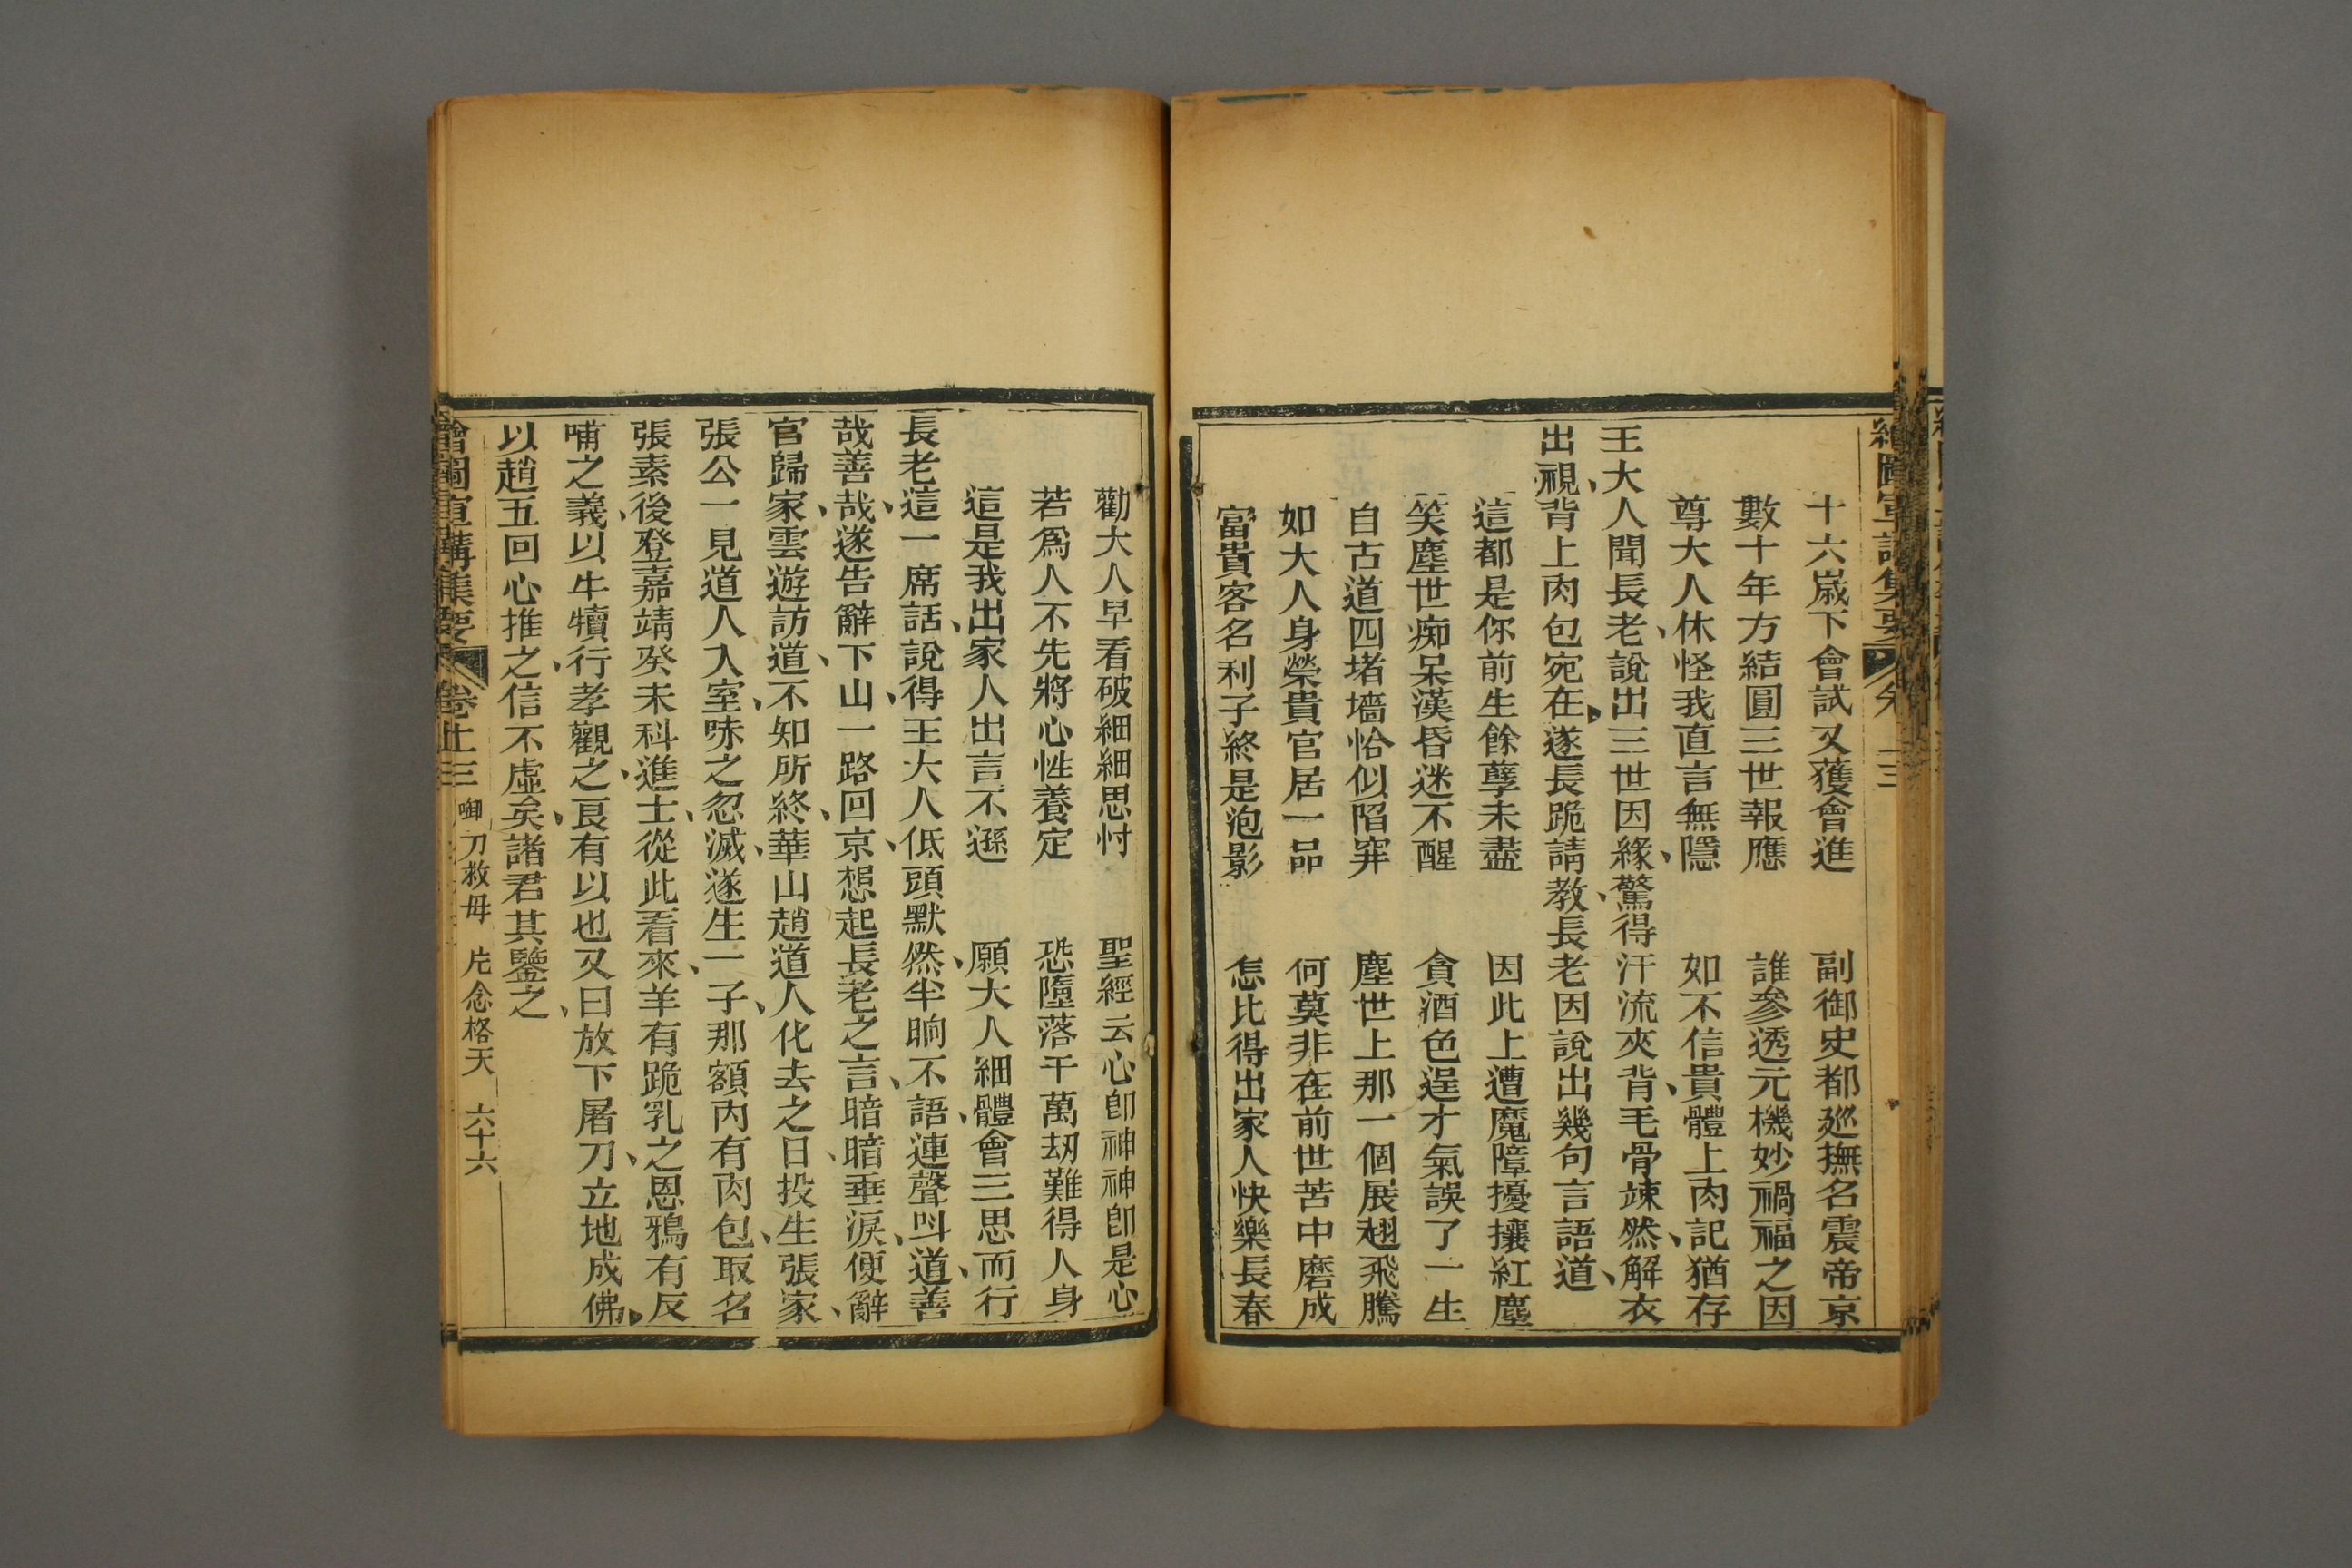 十六嵗下會試又獲會進　副御史都廵撫名震帝京
數十年方結圓三世報應　誰參透元機妙禍福之因
尊大人休怪我直言無隱　如不信貴體上肉記猶存
王大人聞長老、說出三世因緣、驚得汗流夾背、毛骨竦然、解衣
出視、背上肉包宛在、遂長跪請教、長老因說出幾句言語道、
這都是你前生餘孽未盡　因此上遭魔障擾攘紅塵
笑塵世痴呆漢昏迷不醒　貪酒色逞才氣誤了一生
自古道四堵墻恰似陷穽　塵世上那一個展翅飛騰
如大人身榮貴官居一品　何莫非在前世苦中磨成
富貴客名利子終是泡影　怎比得出家人快樂長春
勸大人早看破細細思忖　聖經云心卽神神卽是心
若爲人不先將心性養定　恐墮落千萬刼難得人身
這是我出家人出言不遜　願大人細體會三思而行
長老這一席話、說得王大人低頭默然、半晌不語、連聲呌道、善
哉善哉、遂告辭下山、一路回京、想起長老之言、暗暗垂淚、便辭
官歸家、雲遊訪道、不知所終、華山趙道人化去之日、投生張家、
張公一見道人入室、昧之忽滅、遂生一子、那額內有肉包、取名
張素、後登嘉靖癸未科進士、從此看來、羊有跪乳之恩、鴉有反
哺之義、以牛犢行孝觀之、良有以也、又曰放下屠刀、立地成佛、
以趙五回心推之、信不虛矣、諸君其鑒之、
繪圖宣講集要　卷十三　啣刀救母　片念格天　六十六